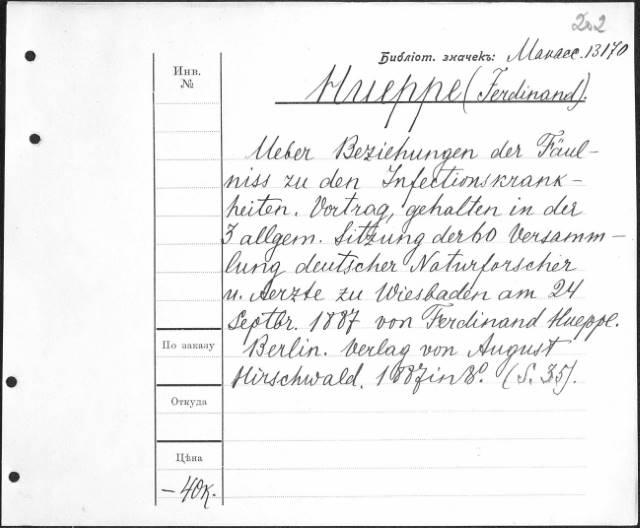 2.2
Библіот. значекъ: Манасе. 13170
Инв.
№
Hueppe (Ferdinand).
Ueber Beziehungen der Fäul-
niss zu den Infectionskrank-
heiten. Vortrag, gehalten in der
3 allgem. Sitzung der 60 Versamm-
lung deutscher Naturforscher
u. Aerzte zu Wiesbaden am 24
Septbr. 1887 von Ferdinand Hueppe.
По заказу
Berlin. Verlag von August
Hirschwald. 1887 in 8°. (S. 35).
Откуда
Цѣна
– 40 к.